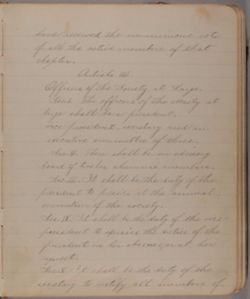 have received the unanimous vote
of all the active members of that
chapter.
Article III.
Officers of the Society at Large.
Sec I. The officers of the society at
large shall be a president,
vice president, secretary and an
executive committee of three.
Sec II. There shall be an advisory
board of twelve alumnae members.
Sec III. It shall be the duty of the
president to preside at the annual
convention of the society.
Sec IV. It shall be the duty of the vice
president to exercise the duties of the
president in her absence, or at her
request.
Sec V. It shall be the duty of the
secretary to notify all members of